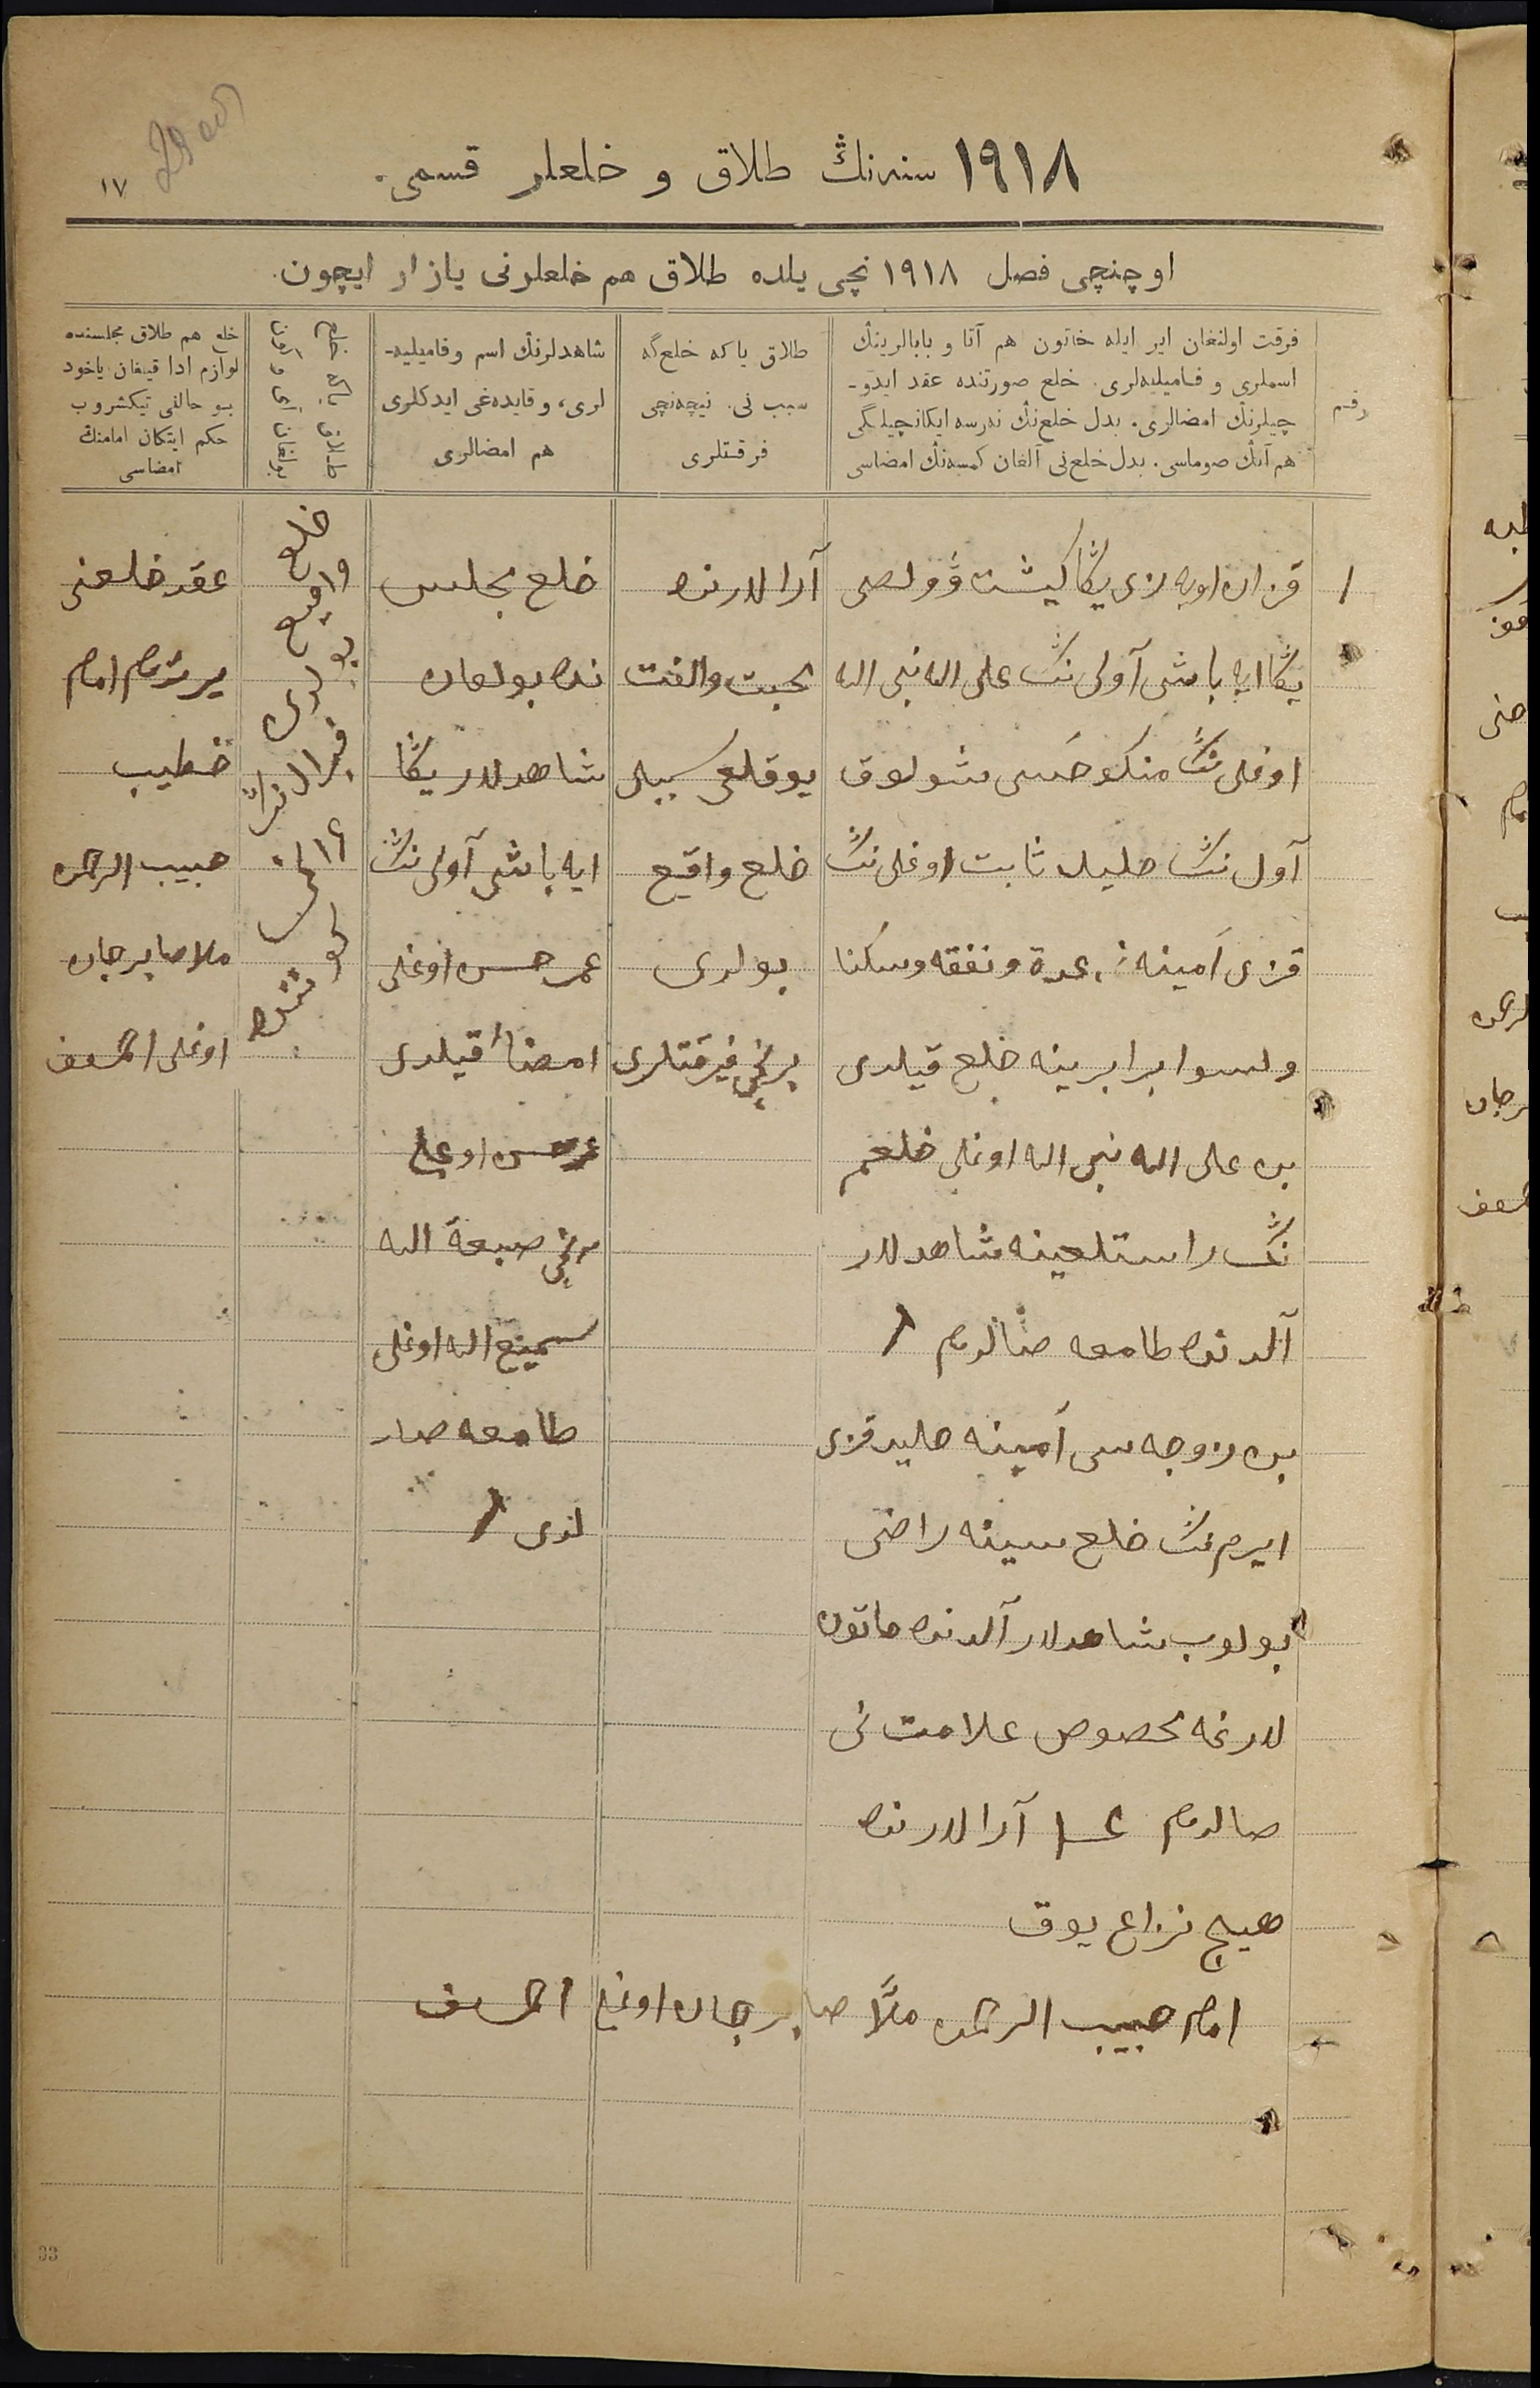 29 об
١٧
١٩١٨ سنه‌نڭ طلاق و خلعلر قسمی.
اوچنچی فصل ١٩١٨ نچی یلده طلاق هم خلعلرنی یازار ایچون.
رقم
فرقت اولنغان ایر ایله خاتون هم آتا و بابالرینڭ
اسملری و فامیلیه‌لری. خلع صورتنده عقد ایدو-
چیلرنڭ امضالری. بدل خلع‌نڭ ندرسه ایکانچیلگی
هم آنڭ صوماسی. بدل خلع‌نی آلغان کمسه‌نڭ امضاسی
طلاق یا که خلع‌گه
سبب نی. نیچه‌نچی
فرقتلری
شاهدلرنڭ اسم و فامیلیه-
لری، و قایده‌غی ایدکلری
هم امضالری
طلاق یا که خلع
بولغان آی و کون
خلع هم طلاق مجلسنده
لوازم ادا قیلغان یاخود
بو حالنی تیکشروب
حکم ایتکان امامنڭ
امضاسی
١
قزان اویازی یڭا کیشت وولصی
یڭا ایه باشی آولی نڭ علی الله نبی الله
اوغلی نڭ منکوحه‌سی شولوق
آول نڭ خلیل ثابت اوغلی نڭ
قزی امینه نی عدة و نفقه و سکنا
ولسوا برابرینه خلع قیلدی
بن علی الله نبی الله اوغلی خلعم
نڭ راستلغینه شاهدلار
آلدنده طامغه صالدم
بن زوجه سی امینه خلیل قزی
ایرم نڭ خلع سینه راضی
بولوب شاهدلار آلدنده خاتون
لارغه مخصوص علامت نی
صالدم آرالارنده
هیچ نزاع یوق
آرالارنده
محبت و الفت
یوقلغی سببلی
خلع واقیع
بولدی
برنچی فیرقتلری
خلع مجلس
نده بولغان
شاهدلار یڭا
ایه باشی آولی نڭ
عمر حسن اوغلی
امضاء قیلدی
عمر حسن اوغلی
صبغة الله
سمیع الله اوغلی
طامغه صا
لدی
خلع
واقیع
بولدی
فیرال نڭ
١٤ نچی
کوننده
عقد خلعنی
یرتدم امام
خطیب
حبیب الرحمن
ملا صابرجان
اوغلی
امام حبیب الرحمن ملّا صابرجان اوغلی
33